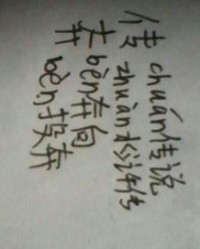 传 chuán传说
zhuàn水浒传
奔 bēn奔向
bèn投奔